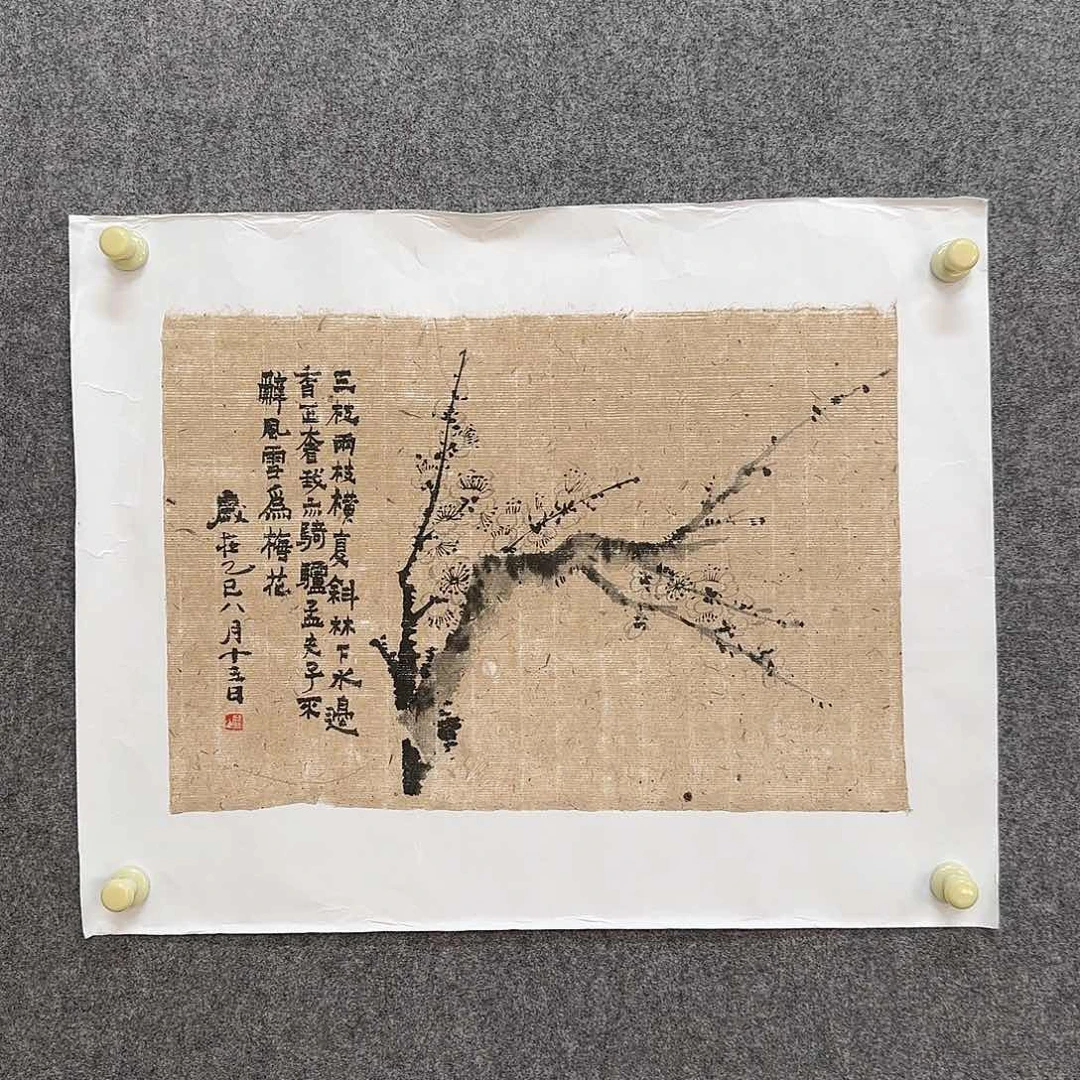 三枝兩枝橫复斜林下水邊
香正奢我亦騎驢孟夫子不
辭風雪爲梅花
莊乙巳八月十五日